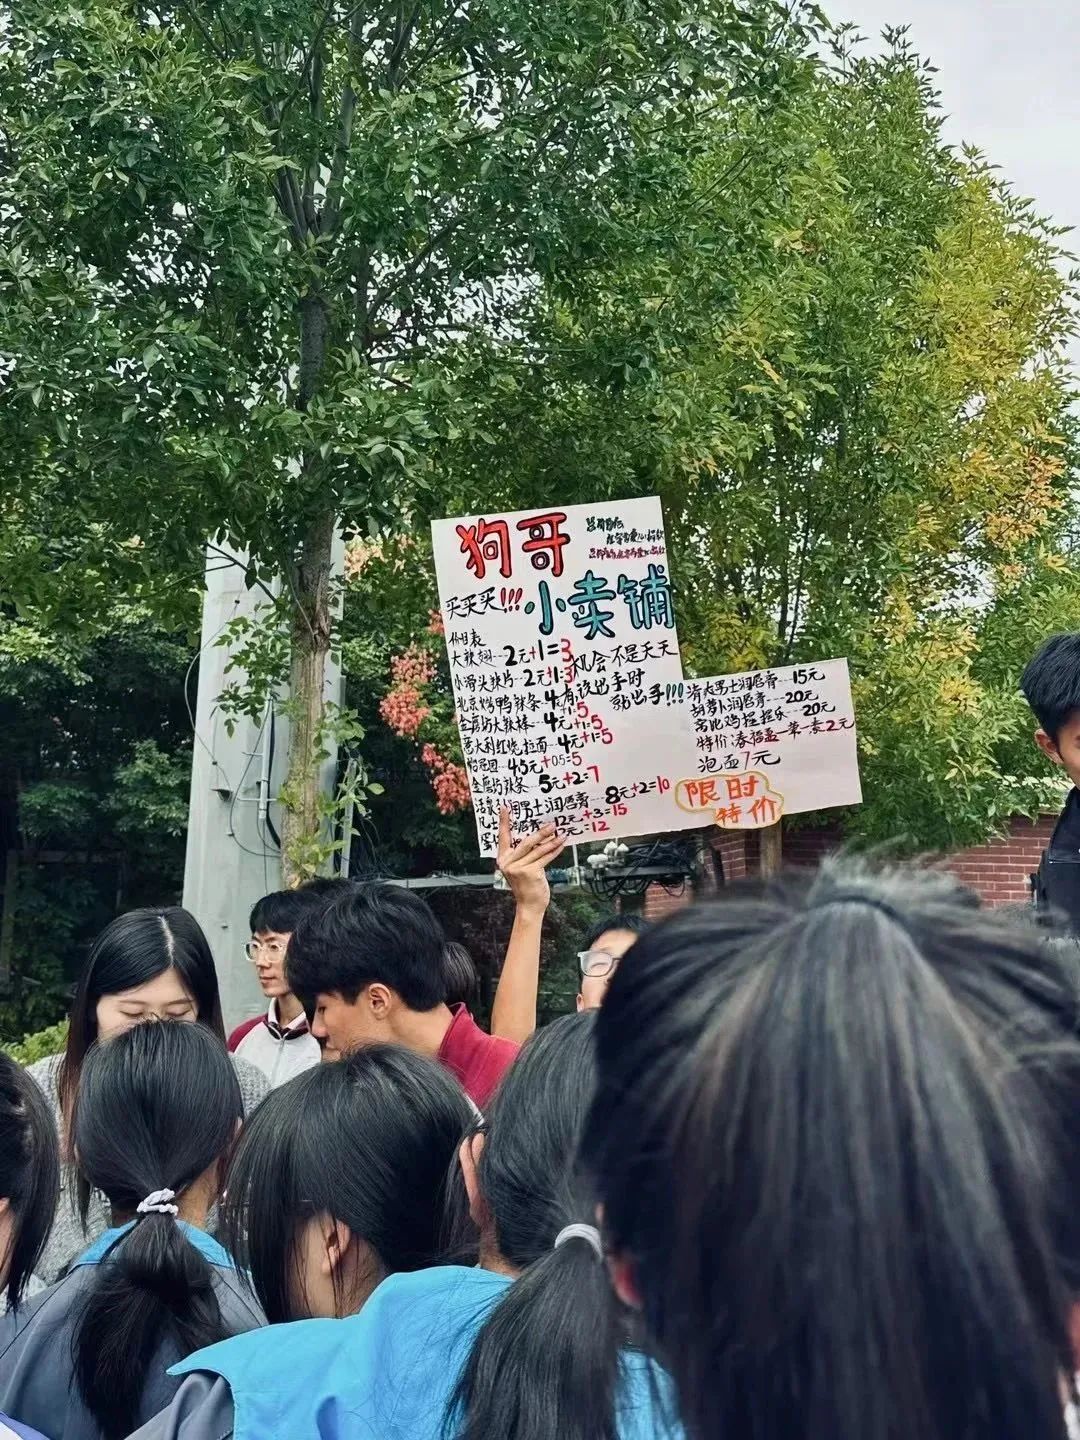 狗哥
小卖铺
买买买!!!
价目表
大辣翅--2元+1=3
小骨头辣片--2元+1=3
北京烤鸭辣条--4元+1=5
金磨坊大辣棒--4元+1=5
意大利红烧拉面--4元+1=5
4.5元+0.5=5
金磨坊辣条--5元+2=7
润男士润唇膏--8元+2=10
12元+3=15
=12
机会不是天天
有该出手时
就出手!!!
男士润唇膏--15元
胡萝卜润唇膏--20元
捏捏乐--20元
特价:
2元
泡面7元
限时
特价